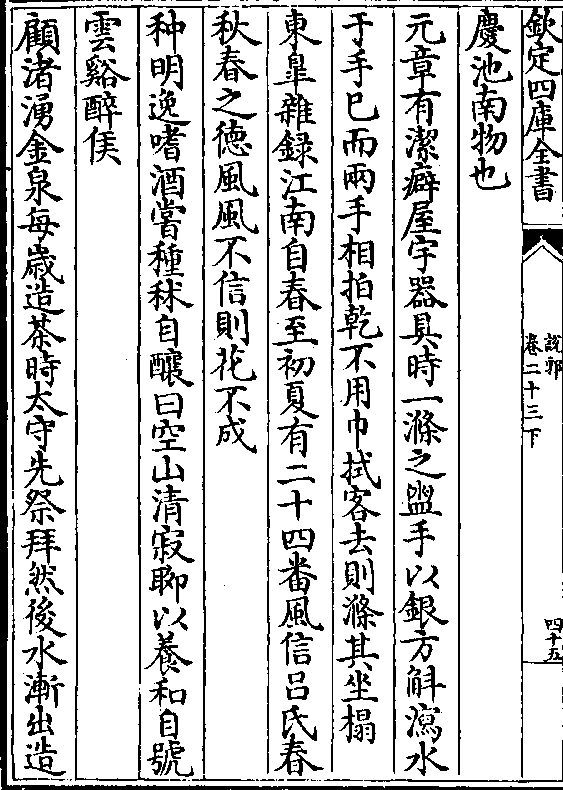 欽定四庫全書
說郛
卷二十三下
四十五
慶池南物也
元章有潔癖屋宇器具時一滌之盥手以銀方斛瀉水
于手已而兩手相拍乾不用巾拭客去則滌其坐榻
東臯雜録江南自春至初夏有二十四番風信吕氏春
秋春之徳風風不信則花不成
种明逸嗜酒嘗種秫自釀曰空山清寂聊以養和自號
雲谿醉侯
顧渚湧金泉每嵗造茶時太守先祭拜然後水漸出造